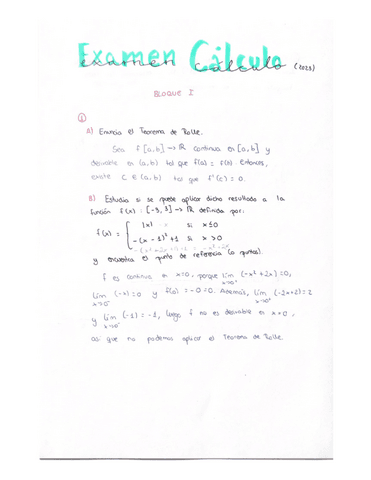 Examen Cálculo (2023)
examen cálculo
BLOQUE I
①
A) Enuncia el Teorema de Rolle.
Sea f [a,b] → ℝ continua en [a,b] y
derivable en (a,b) tal que f(a) = f(b). Entonces,
existe c ∈ (a,b) tal que f'(c) = 0.
B) Estudia si se puede aplicar dicho resultado a la
función f(x) : [-3, 3] → ℝ definida por:
f(x) = { |x| si x≤0
-(x-1)²+1 si x>0
y encuentra el punto de referencia (o puntos).
f es continua en x=0, porque lim x→0⁺ (-x²+2x) = 0,
lim x→0⁻ (-x) = 0 y f(0) = -0 = 0. Además, lim x→0⁺ (-2x+2) = 2
y lim x→0⁻ (-1) = -1, luego f no es derivable en x=0,
así que no podemos aplicar el Teorema de Rolle.